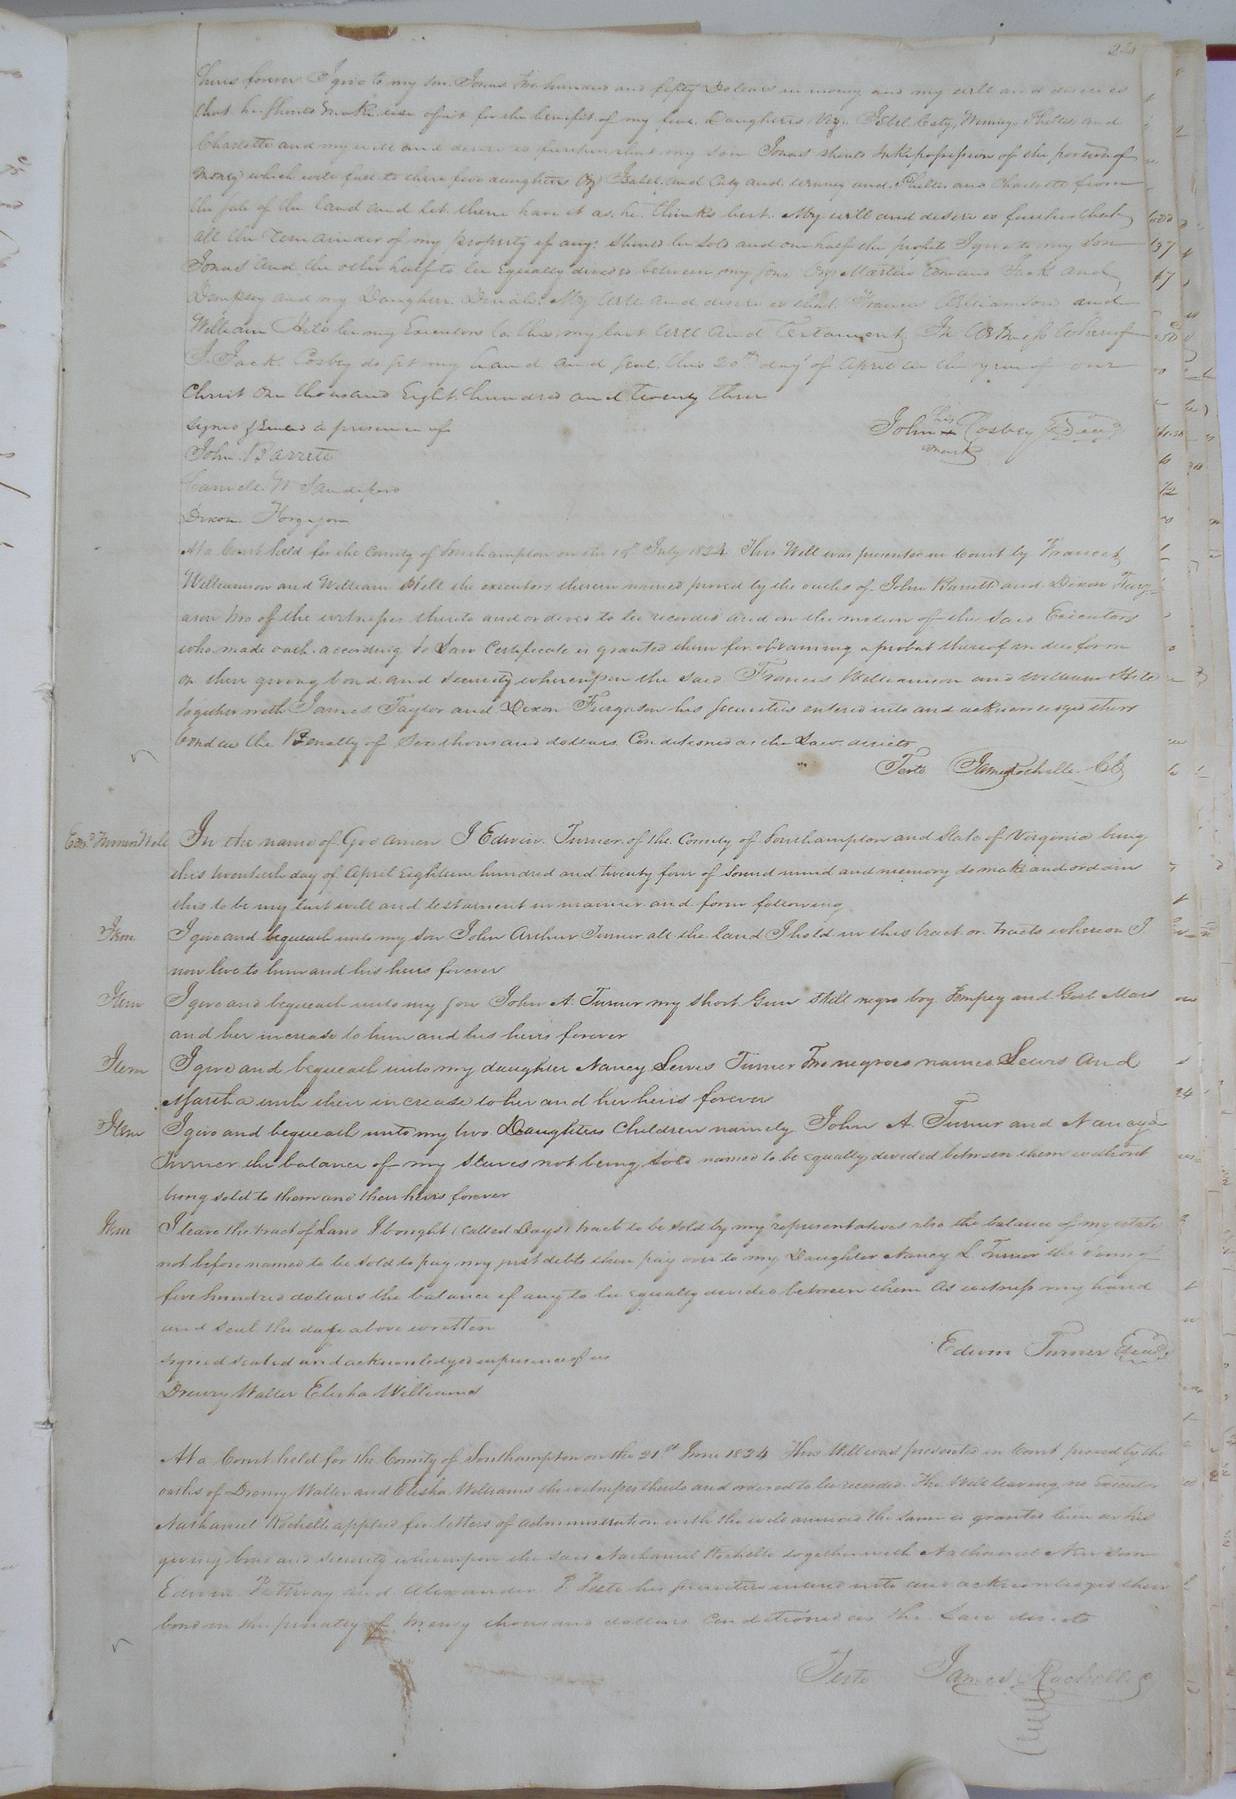 heirs forever I give to my son Jonas two hundred and fifty Dollars in money and my will and desire is
that he should make use of it for the benefit of my five Daughters Viz. Isbel Caty, Winney Phillis and
Charlotte and my will and desire is further that my son Jonas should take possession of the portion of
money which will fall to these five daughters Viz Isabel and Caty and Winney and Phillis and Charlotte from
the sale of the land and let them have it as he thinks best. My will and desire is further that
all the remainder of my property if any should be sold and one half the profits I give to my son
Jonas and the other half to be equally divided between my sons Viz Martin Edmund Jack and
Dempsey and my Daughter Dinah. My will and desire is that Francis Williamson and
William Hill be my Executors to this my last will and Testament In Witness whereof
I Jack Cosbey do set my hand and seal this 20th day of April in the year of our
Christ One thousand Eight hundred and twenty three
Signed & Sealed in presence of
his
John Cosbey Seal
mark
John Barrett
W Sandifors
Dixon
At a Court held for the County of Southampton on the July 1824 This Will was presented in Court by Francis
Williamson and William Hill the executors therein named proved by the oaths of John Barrett and Dixon Furg-
ason two of the witnesses thereto and ordered to be recorded and on the motion of the said Executors
who made oath according to Law Certificate is granted them for obtaining a probat thereof in due form
on there giving bond and security whereupon the said Francis Williamson and William Hill
together with James Taylor and Dixon Furgason his securities entered into and acknowledged there
bond in the Penalty of thousand dollars Conditioned as the Law directs
Teste James Rochelle CC
Edwd. Turners Will
In the name of God amen I Edwin Turner of the County of Southampton and State of Virginia being
this twentieth day of April Eighteen hundred and twenty four of sound mind and memory do make and ordain
this to be my last will and testament in manner and form following
Item I give and bequeath unto my son John Arthur Turner all the land I hold in this tract or tracts whereon I
now live to him and his heirs forever
Item I give and bequeath unto my son John A. Turner my short Gun Still negro boy Dempsey and Girl Mars
and her increase to him and his heirs forever
Item I give and bequeath unto my daughter Nancy Lewis Turner Two negroes named Lewis and
Martha with their increase to her and her heirs forever
Item I give and bequeath unto my two Daughters Children namely John A. Turner and Nancy L
Turner the balance of my slaves not being sold named to be equally divided between them without
being sold to them and their heirs forever
Item I leave the tract of Land I bought (called Days) tract to be sold by my representatives also the balance of my estate
not before named to be sold to pay my just debts then pay over to my Daughter Nancy L. Turner the sum of
five hundred dollars the balance if any to be equally divided between them As witness my hand
and seal the day above written
Signed sealed and acknowledged in presence of us
Edwin Turner Seal
Drewry Waller Elisha Williams
At a Court held for the County of Southampton on the 21st June 1824 This Will was presented in Court proved by the
oaths of Drewry Waller and Elisha Williams the witnesses thereto and ordered to be recorded. The Will leaving no Executor
Nathaniel Rochelle applied for letters of administration with the will annexed the same is granted him on his
giving bond and security whereupon the said Nathaniel Rochelle together with Nathaniel Newsom
Edwin Pettway and Alexander P. Peete his securities entered into and acknowledged their
bond in the penalty of twenty thousand dollars Conditioned as the Law directs
Teste James Rochelle c